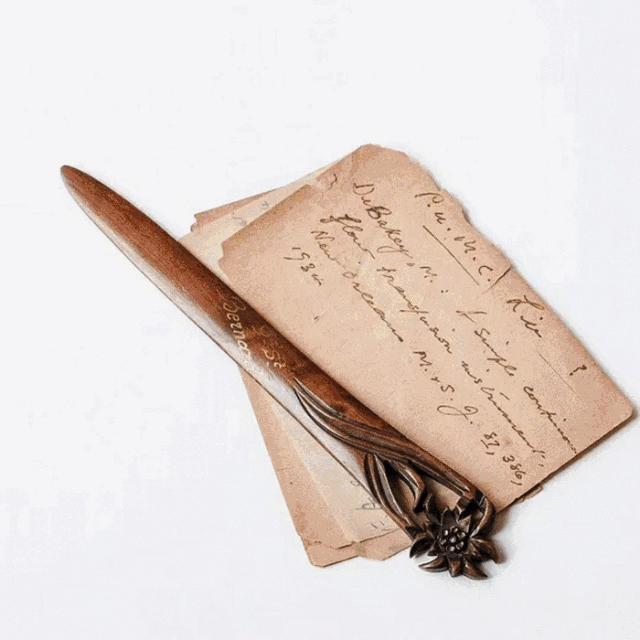 P.U.M.C. Lib — ?
DeBakey, M: A simple continuous
flow transfusion instrument.
New Orleans M. & S. J. 87, 386,
1934
St
Bernard